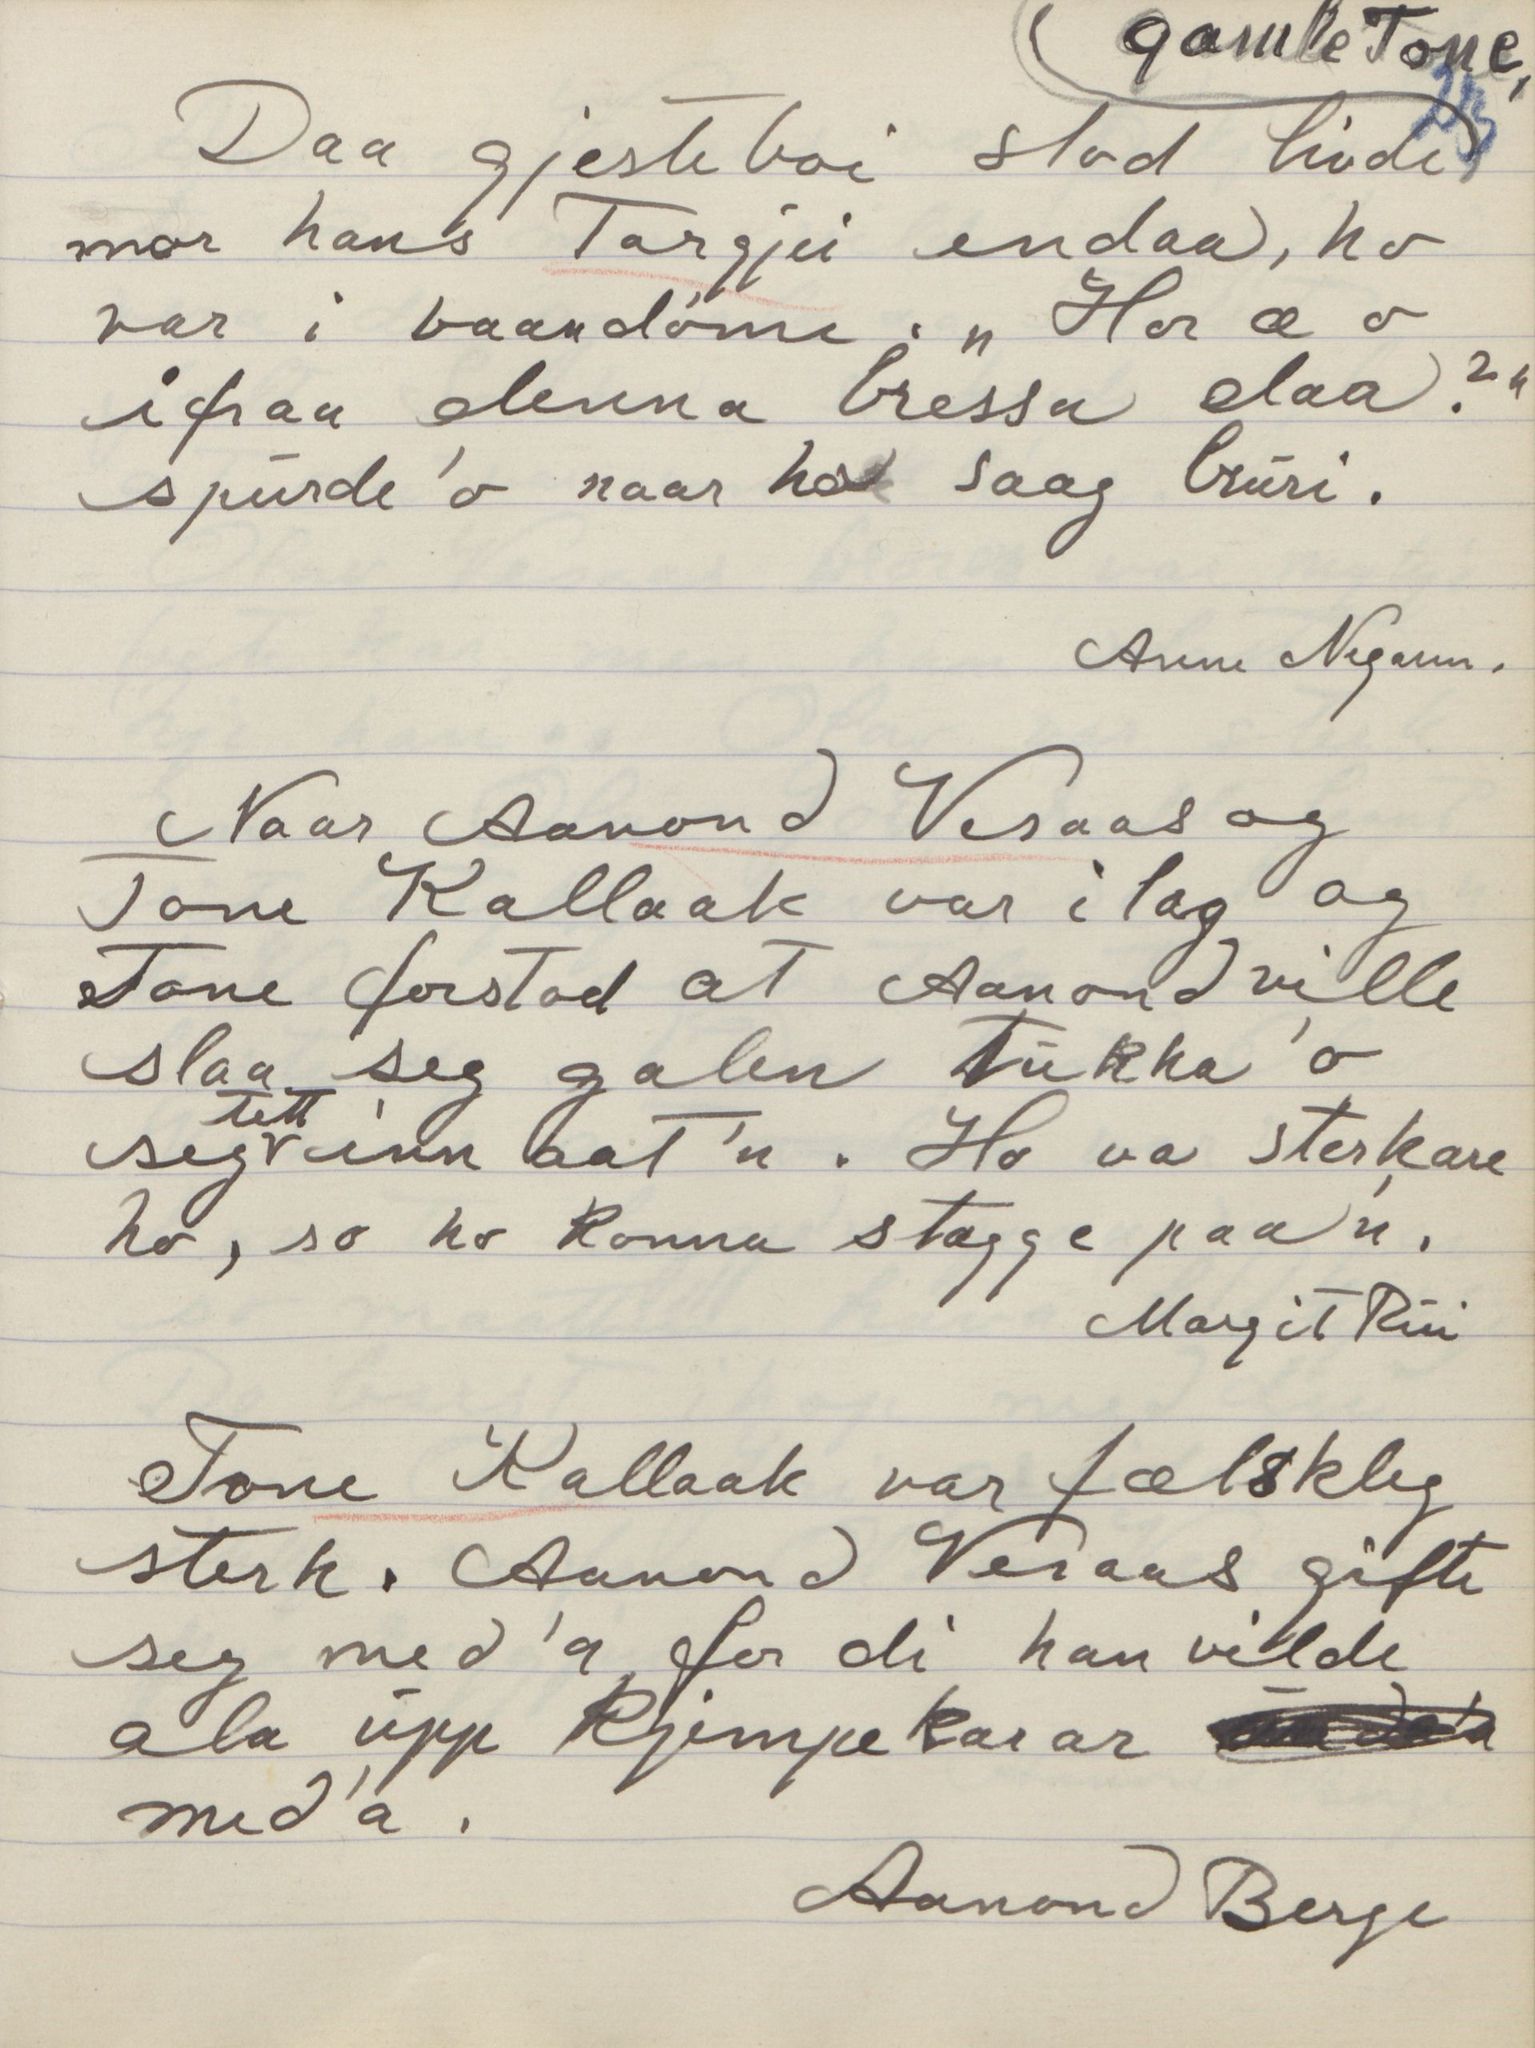 gamle Tone,
Daa gjesteboi stod livde
mor hans Targjei endaa, ho
var i baandóme. „Hor æ o
ifraa denna bressa daa?“
spurde'o naar ho saag brúri.
Anne Nigarn.
Naar Aanond Vesaas og
Tone Kallaak var i lag og
Tone forstod at Aanond ville
slaa seg galen tukka'o
seg tett inn aat'n. Ho va sterkare
ho, so ho konna stagge paa'n.
Margit Rui
Tone Kallaak var fælskleg
sterk. Aanond Vesaas gifte
seg med'a for di han vilde
ala upp kjempekarar
med'a.
Aanond Berge